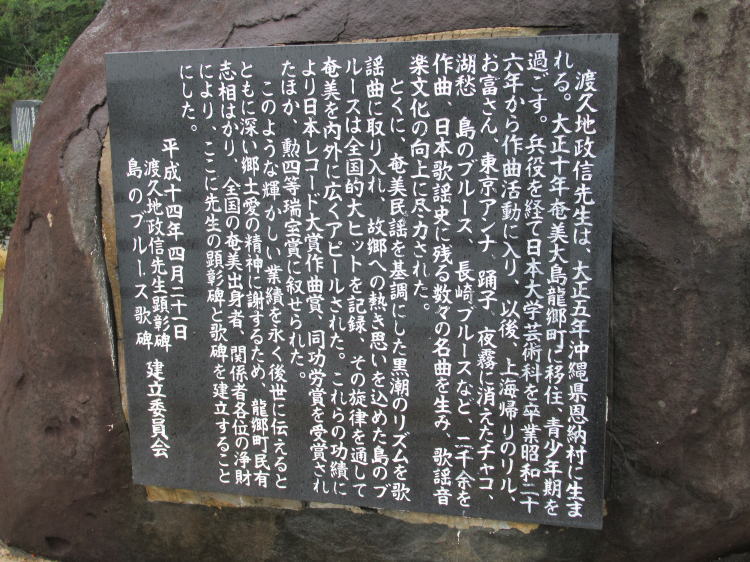 渡久地政信先生は、大正五年沖縄県恩納村に生ま
れる。大正十年奄美大島龍郷町に移住、青少年期を
過ごす。兵役を経て日本大学芸術科を卒業昭和二十
六年から作曲活動に入り、以後、上海帰りのリル、
お富さん、東京アンナ、踊子、夜霧に消えたチャコ、
湖愁、島のブルース、長崎ブルースなど、二千余を
作曲、日本歌謡史に残る数々の名曲を生み、歌謡音
楽文化の向上に尽力された。
とくに、奄美民謡を基調にした黒潮のリズムを歌
謡曲に取り入れ、故郷への熱き思いを込めた島のブ
ルースは全国的大ヒットを記録、その旋律を通して
奄美を内外に広くアピールされた。これらの功績に
より日本レコード大賞作曲賞、同功労賞を受賞され
たほか、勲四等瑞宝賞に叙せられた。
このような輝かしい業績を永く後世に伝えると
ともに深い郷土愛の精神に謝するため、龍郷町民有
志相はかり、全国の奄美出身者、関係者各位の浄財
により、ここに先生の顕彰碑と歌碑を建立すること
にした。
平成十四年四月二十一日
渡久地政信先生顕彰碑
島のブルース歌碑
建立委員会